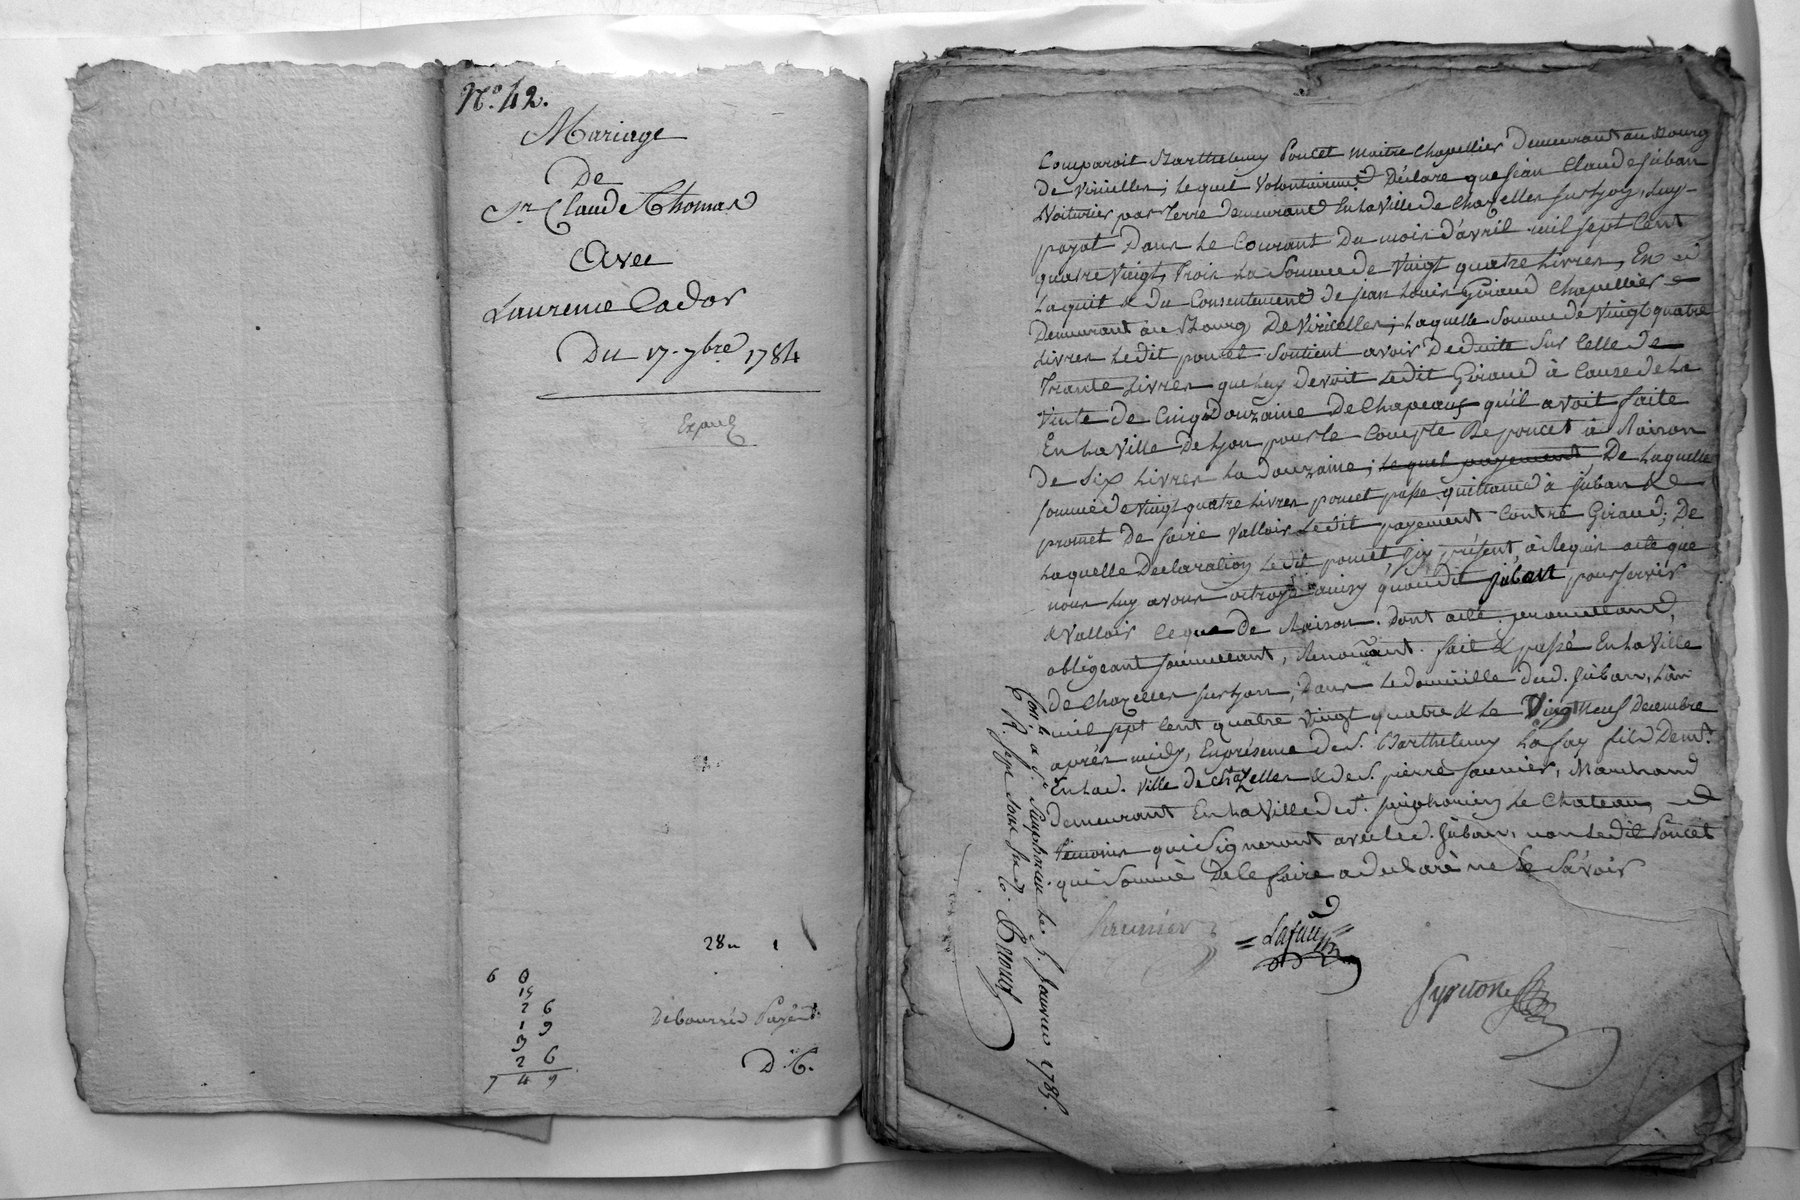 N.o 42.
Mariage
De
Sr. Claude Thomas
Avec
Laurence Cador
Du 17. 7bre 1784
Exped
28 1
6 0
15
2 6
1 9
3
2 6
7 4 9
Debourrés Payés
D. C.
Comparoit Barthelemy Poncet maitre Chapellier Demeurant au Bourg
De Viricelles; lequel volontairemt. Déclare que Jean Claude Juban
Voiturier par terre demeurant En la Ville de Chazelles sur Lyon, luy
payat Dans le Courant Du mois d'avril mil sept Cent
quatre vingt trois la Somme de vingt quatre livres, En
laquit & du Consentement De Jean Louis Giraud Chapellier
Demeurant au Bourg De Viricelles; laquelle Somme de vingt quatre
livres ledit poncet Soutient avoir Deduite sur Celle De
Trante livres que luy devoit ledit Giraud à Cause de la
Vente de Cinq Douzaine De Chapeaux qu'il avoit faite
En la Ville De Lyon pour le Compte De poncet à Raison
De six livres la douzaine; le quel payement De laquelle
somme de vingt quatre livres poncet passe quittance à Juban &
promet De faire valloir ledit payement Contre Giraud; De
laquelle Declaration ledit poncet, icy présent, à Requis acte que
nous luy avons octroyé ainsy quaudit Juban pour servir
& valloir Ce que De Raison. Dont acte. promettant,
obligeant soumettant, Renonçant. fait & passé En la Ville
De Chazelles sur Lyon, Dans le domicille dud. Juban, L'an
mil sept Cent quatre vingt quatre & le Vingt Neuf Decembre
après midy, En présence de S. Barthelemy Lafay fils Demt.
En lad. Ville de Chazelles & de S. pierre Saunier, Marchand
demeurant En la Ville de St. simphorien le Chateau,
temoins qui Signeront avec led. Juban, non ledit Poncet
qui Sommé De le faire a declaré ne le Savoir
Lafay
Con.lé a St. Simphorien le 5. Janvier 1785.
R. sols